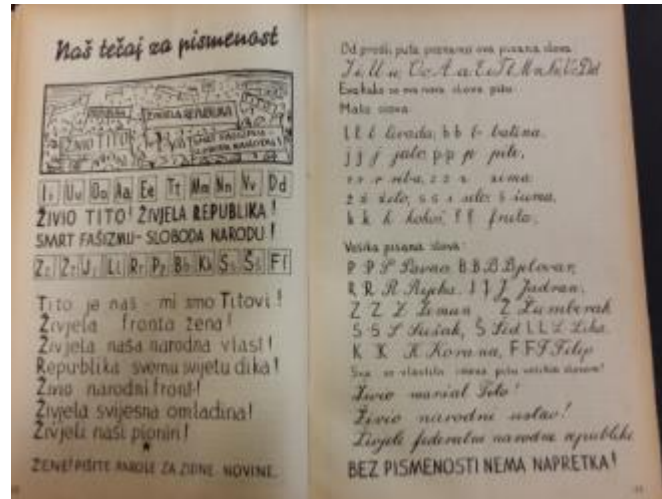 Naš tečaj za pismenost
ŽIVJELA REPUBLIKA
ŽIVIO TITO
SMRT FAŠIZMU
SLOBODA NARODU!
Ii Uu Oo Aa Ee Tt Mm Nn Vv Dd
ŽIVIO TITO! ŽIVJELA REPUBLIKA!
SMRT FAŠIZMU - SLOBODA NARODU!
Zz Žž Jj Ll Rr Pp Bb Kk Ss Šš Ff
Tito je naš - mi smo Titovi!
Živjela fronta žena!
Živjela naša narodna vlast!
Republika svemu svijetu dika!
Živio narodni front!
Živjela svijesna omladina!
Živjeli naši pionin!
ŽENE! PIŠITE PAROLE ZA ZIDNE NOVINE.
Od prošli puta poznamo ova pisana slova
Evo kako se ova nova slova pišu
Mala slova:
l l l livada, b b b batina,
j j j jaje, p p p pile,
r r r riba, z z z zima
ž ž želo, s s s selo, š šuma,
k k k kokoš, f f frula,
Velika pisana slova:
P P P Pavao B B B Bjelovar,
R R R Rijeka, J J J Jadran,
Z Z Z Zeman Ž Žumberak
S S S Sušak, Š Šid L L L Lika
K K K Korana, F F F Filip
Sva se vlastita imena pišu velikim slovom!
Živio maršal Tito!
Živio narodni ustav!
Živjele federalne narodne republike
BEZ PISMENOSTI NEMA NAPRETKA!